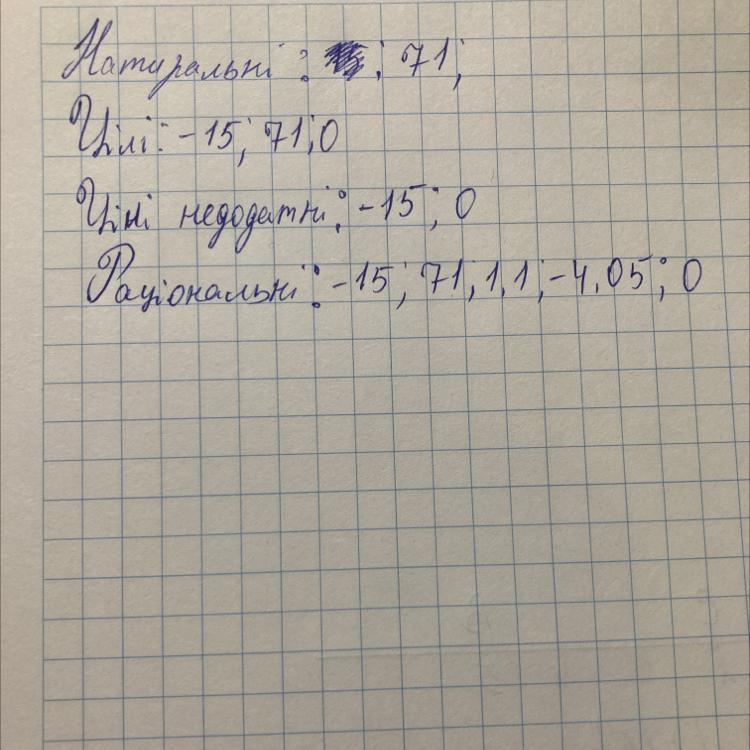 Натуральні : ; 71;
Цілі: -15; 71; 0
Цілі недодатні: -15; 0
Раціональні: -15; 71; 1,1; -4,05; 0